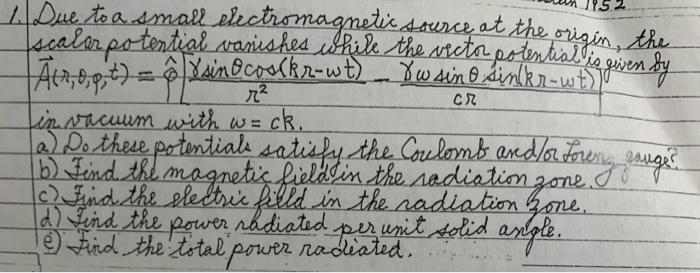 1952
1. Due to a small electromagnetic source at the origin, the
scalar potential vanishes while the vector potential is given by
A⃗(r,θ,φ,t) = φ̂ [γ sinθ cos(kr-ωt)/r² - γω sinθ sin(kr-ωt)/cr]
in vacuum with ω = ck.
a) Do these potentials satisfy the Coulomb and/or Lorenz gauge?
b) Find the magnetic field in the radiation zone.
c) Find the electric field in the radiation zone.
d) Find the power radiated per unit solid angle.
e) Find the total power radiated.